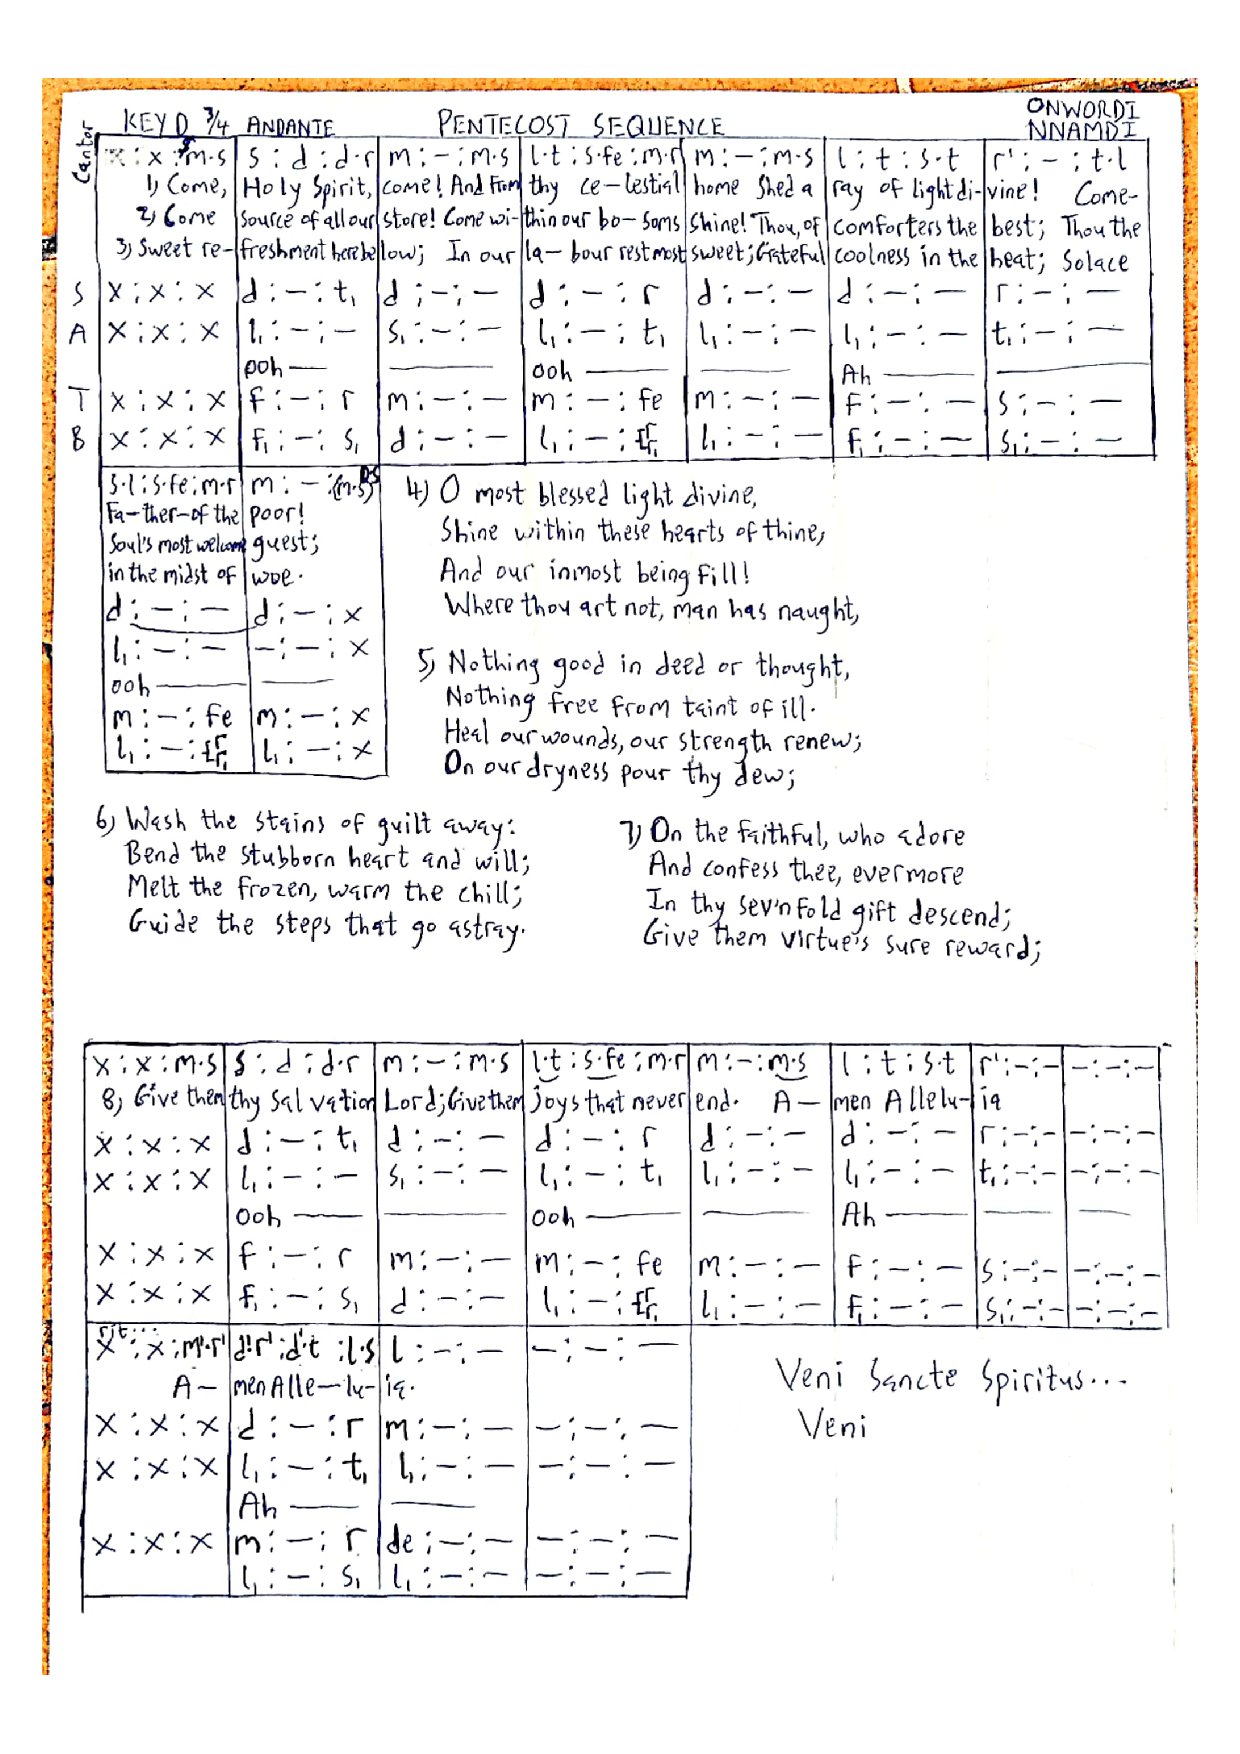 KEY D 3/4 ANDANTE PENTECOST SEQUENCE ONWORDI
NNAMDI
Cantor
x : x : m.s | s : d : d.r | m : – : m.s | l.t : s.fe : m.r | m : – : m.s | l : t : s.t | r' : – : t.l
1) Come, Holy Spirit, come! And from thy ce-lestial home Shed a ray of light di-vine! Come-
2) Come source of all our store! Come wi-thin our bo-soms Shine! Thou, of comforters the best; Thou the
3) Sweet re-freshment here below; In our la-bour rest most sweet; Grateful coolness in the heat; Solace
S x : x : x | d : – : t₁ | d : – : – | d : – : r | d : – : – | d : – : – | r : – : –
A x : x : x | l₁ : – : – | s₁ : – : – | l₁ : – : t₁ | l₁ : – : – | l₁ : – : – | t₁ : – : –
ooh — ooh — Ah —
T x : x : x | f : – : r | m : – : – | m : – : fe | m : – : – | f : – : – | s : – : –
B x : x : x | f₁ : – : s₁ | d : – : – | l₁ : – : | l₁ : – : – | f₁ : – : – | s₁ : – : –
s.l : s.fe : m.r | m : – : (m.s) DS
Fa-ther-of the poor!
Soul's most welcome guest;
in the midst of woe.
d : – : – | d : – : x
l₁ : – : – | – : – : x
ooh —
m : – : fe | m : – : x
l₁ : – : | l₁ : – : x
4) O most blessed light divine,
Shine within these hearts of thine,
And our inmost being fill!
Where thou art not, man has naught,
5) Nothing good in deed or thought,
Nothing free from taint of ill.
Heal our wounds, our strength renew;
On our dryness pour thy dew;
6) Wash the stains of guilt away:
Bend the stubborn heart and will;
Melt the frozen, warm the chill;
Guide the steps that go astray.
7) On the faithful, who adore
And confess thee, evermore
In thy sev'nfold gift descend;
Give them virtue's sure reward;
x : x : m.s | s : d : d.r | m : – : m.s | l.t : s.fe : m.r | m : – : m.s | l : t : s.t | r' : – : – | – : – : –
8) Give them thy Salvation Lord; Give them joys that never end. A-men Allelu-ia
x : x : x | d : – : t₁ | d : – : – | d : – : r | d : – : – | d : – : – | r : – : – | – : – : –
x : x : x | l₁ : – : – | s₁ : – : – | l₁ : – : t₁ | l₁ : – : – | l₁ : – : – | t₁ : – : – | – : – : –
ooh — ooh — Ah —
x : x : x | f : – : r | m : – : – | m : – : fe | m : – : – | f : – : – | s : – : – | – : – : –
x : x : x | f₁ : – : s₁ | d : – : – | l₁ : – : | l₁ : – : – | f₁ : – : – | s₁ : – : – | – : – : –
rit...
x : x : m'.r' | d'.r' : d'.t : l.s | l : – : – | – : – : –
A-men Alle-lu-ia.
x : x : x | d : – : r | m : – : – | – : – : –
x : x : x | l₁ : – : t₁ | l₁ : – : – | – : – : –
Ah —
x : x : x | m : – : r | de : – : – | – : – : –
l₁ : – : s₁ | l₁ : – : – | – : – : –
Veni Sancte Spiritus...
Veni